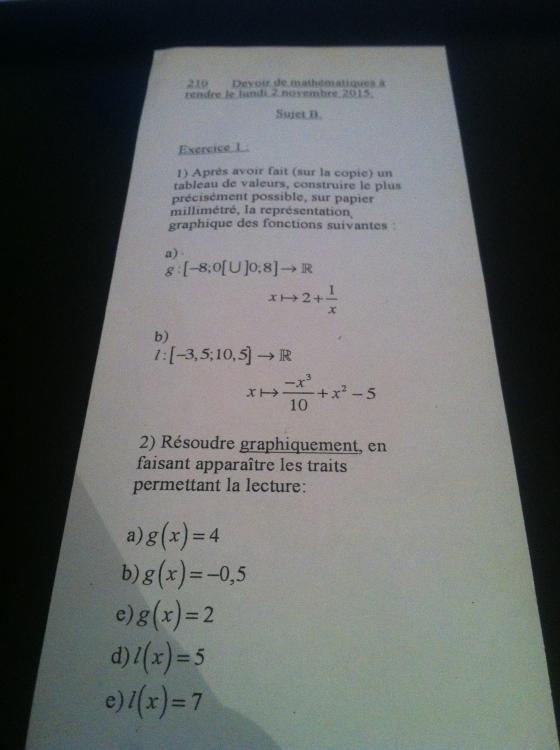 210 Devoir de mathématiques à
rendre le lundi 2 novembre 2015.
Sujet B.
Exercice 1 :
1) Après avoir fait (sur la copie) un
tableau de valeurs, construire le plus
précisément possible, sur papier
millimétré, la représentation
graphique des fonctions suivantes :
a)
g :[−8;0[∪]0;8]→ ℝ
x ↦ 2+1/x
b)
l :[−3,5;10,5] → ℝ
x ↦ −x³/10 + x² − 5
2) Résoudre graphiquement, en
faisant apparaître les traits
permettant la lecture:
a) g(x)=4
b) g(x)=−0,5
c) g(x)=2
d) l(x)=5
e) l(x)=7